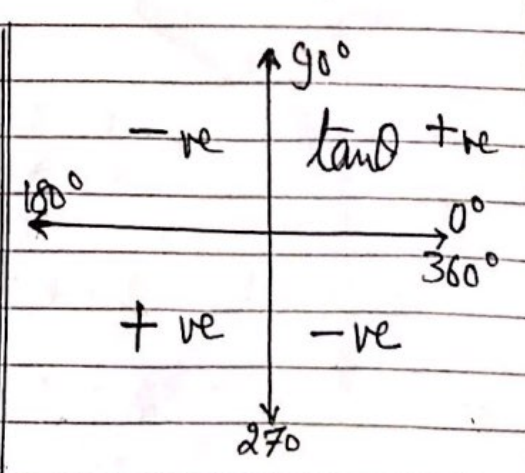 90°
-ve tanθ +ve
180° 0°
360°
+ve -ve
270